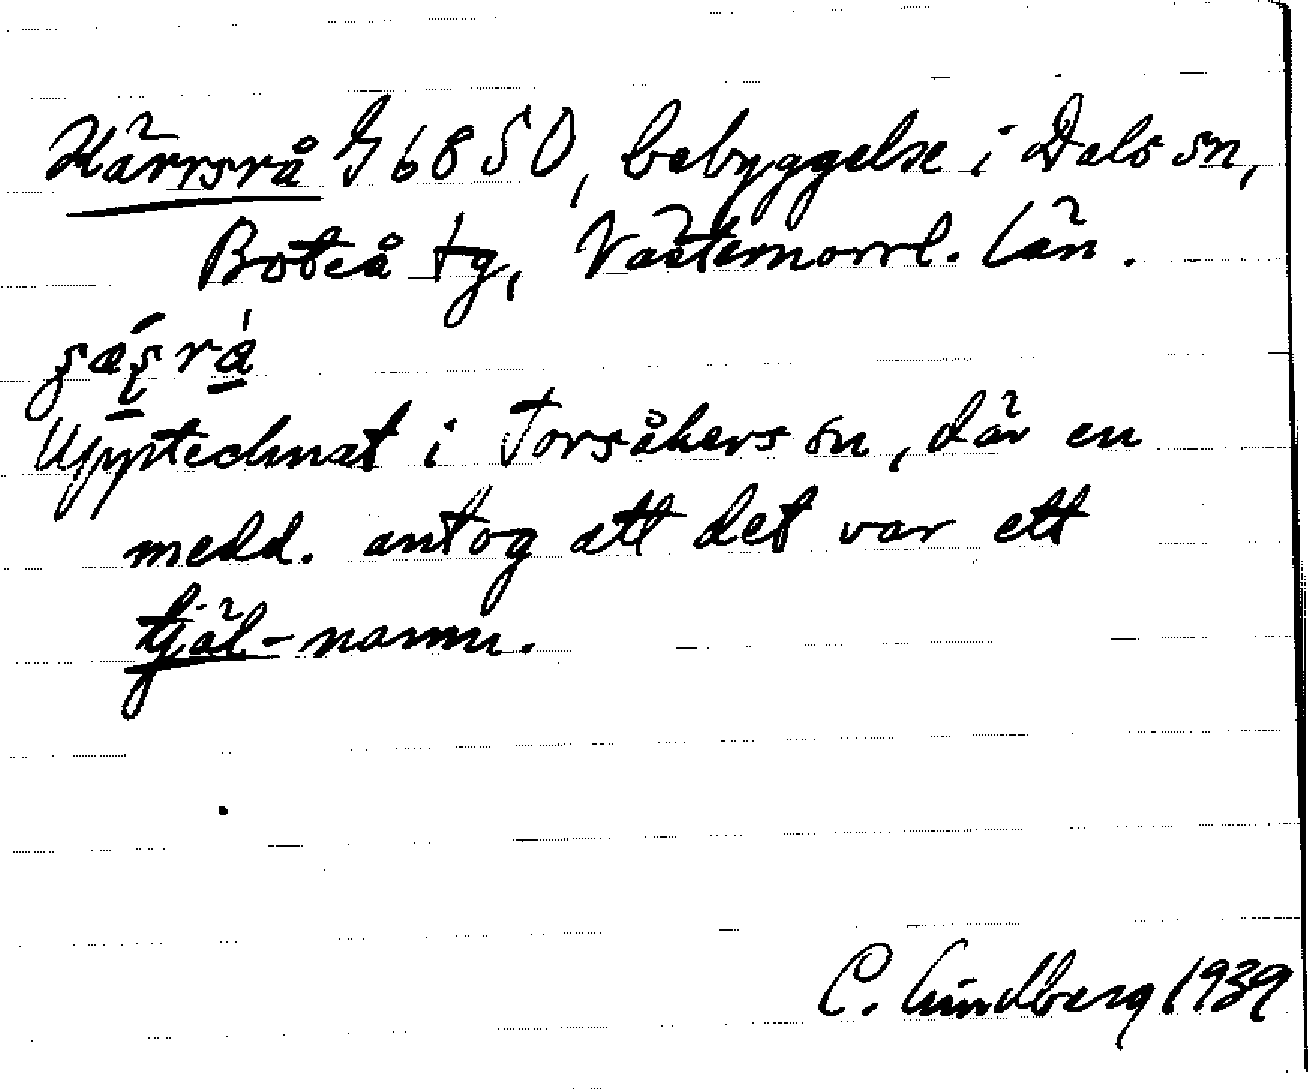 Kärrsrå G 6850, bebyggelse i Dals sn,
Boteå tg, Västernorrl. län.
Upptecknat i Torsåkers sn, där en
medd. antog att det var ett
tjäl-namn.
C. Lindberg 1939